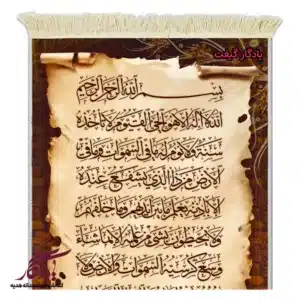 یادگار گیفت
بسم الله الرحمن الرحيم
الله لا اله الا هو الحي القيوم لا تأخذه
سنة ولا نوم له ما في السموات وما في
الارض من ذا الذي يشفع عنده
الا باذنه يعلم ما بين ايديهم وما خلفهم
ولا يحيطون بشيء من علمه الا بما شاء
وسع كرسيه السموات والارض ولا